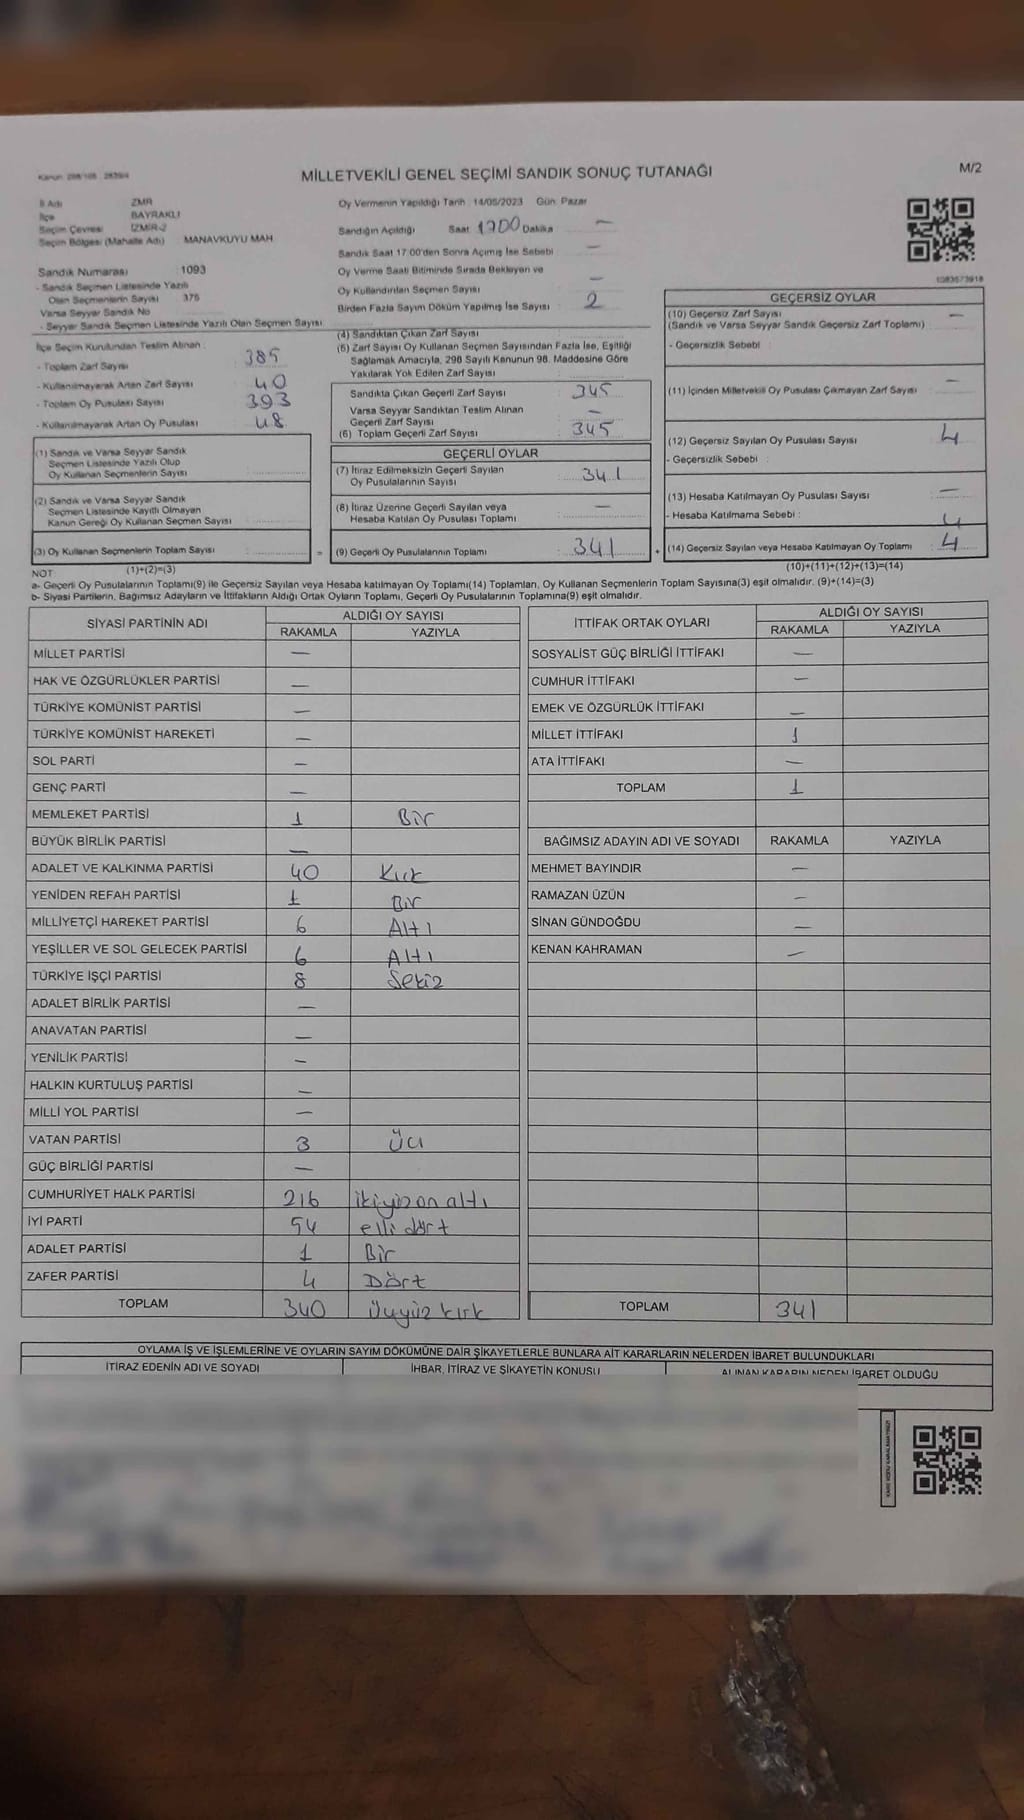 MİLLETVEKİLİ GENEL SEÇİMİ SANDIK SONUÇ TUTANAĞI
M/2
İl Adı ZMR
İlçe BAYRAKLI
Seçim Çevresi İZMİR-2
Seçim Bölgesi (Mahalle Adı) MANAVKUYU MAH
Sandık Numarası : 1093
- Sandık Seçmen Listesinde Yazılı
Olan Seçmenlerin Sayısı 375
Varsa Seyyar Sandık No
- Seyyar Sandık Seçmen Listesinde Yazılı Olan Seçmen Sayısı
İlçe Seçim Kurulundan Teslim Alınan :
- Toplam Zarf Sayısı 385
- Kullanılmayarak Artan Zarf Sayısı 40
- Toplam Oy Pusulası Sayısı 393
- Kullanılmayarak Artan Oy Pusulası 48
(1) Sandık ve Varsa Seyyar Sandık
Seçmen Listesinde Yazılı Olup
Oy Kullanan Seçmenlerin Sayısı
(2) Sandık ve Varsa Seyyar Sandık
Seçmen Listesinde Kayıtlı Olmayan
Kanun Gereği Oy Kullanan Seçmen Sayısı
(3) Oy Kullanan Seçmenlerin Toplam Sayısı : =
Oy Vermenin Yapıldığı Tarih : 14/05/2023 Gün: Pazar
Sandığın Açıldığı Saat 1700 Dakika —
Sandık Saat 17.00'den Sonra Açımış İse Sebebi —
Oy Verme Saati Bitiminde Sırada Bekleyen ve
Oy Kullandırılan Seçmen Sayısı —
Birden Fazla Sayım Döküm Yapılmış İse Sayısı : 2
(4) Sandıktan Çıkan Zarf Sayısı
(5) Zarf Sayısı Oy Kullanan Seçmen Sayısından Fazla İse, Eşitliği
Sağlamak Amacıyla, 298 Sayılı Kanunun 98. Maddesine Göre
Yakılarak Yok Edilen Zarf Sayısı
Sandıkta Çıkan Geçerli Zarf Sayısı : 345
Varsa Seyyar Sandıktan Teslim Alınan
Geçerli Zarf Sayısı —
(6) Toplam Geçerli Zarf Sayısı : 345
GEÇERLİ OYLAR
(7) İtiraz Edilmeksizin Geçerli Sayılan
Oy Pusulalarının Sayısı 341
(8) İtiraz Üzerine Geçerli Sayılan veya
Hesaba Katılan Oy Pusulası Toplamı —
(9) Geçerli Oy Pusulalarının Toplamı : 341 +
GEÇERSİZ OYLAR
(10) Geçersiz Zarf Sayısı
(Sandık ve Varsa Seyyar Sandık Geçersiz Zarf Toplamı) —
- Geçersizlik Sebebi
(11) İçinden Milletvekili Oy Pusulası Çıkmayan Zarf Sayısı —
(12) Geçersiz Sayılan Oy Pusulası Sayısı 4
- Geçersizlik Sebebi :
(13) Hesaba Katılmayan Oy Pusulası Sayısı —
- Hesaba Katılmama Sebebi : 4
(14) Geçersiz Sayılan veya Hesaba Katılmayan Oy Toplamı : 4
NOT (1)+(2)=(3) (10)+(11)+(12)+(13)=(14)
a- Geçerli Oy Pusulalarının Toplamı(9) ile Geçersiz Sayılan veya Hesaba katılmayan Oy Toplamı(14) Toplamları, Oy Kullanan Seçmenlerin Toplam Sayısına(3) eşit olmalıdır. (9)+(14)=(3)
b- Siyasi Partilerin, Bağımsız Adayların ve İttifakların Aldığı Ortak Oyların Toplamı, Geçerli Oy Pusulalarının Toplamına(9) eşit olmalıdır.
SİYASİ PARTİNİN ADI ALDIĞI OY SAYISI
RAKAMLA YAZIYLA
MİLLET PARTİSİ —
HAK VE ÖZGÜRLÜKLER PARTİSİ —
TÜRKİYE KOMÜNİST PARTİSİ —
TÜRKİYE KOMÜNİST HAREKETİ —
SOL PARTİ —
GENÇ PARTİ —
MEMLEKET PARTİSİ 1 Bir
BÜYÜK BİRLİK PARTİSİ —
ADALET VE KALKINMA PARTİSİ 40 Kırk
YENİDEN REFAH PARTİSİ 1 Bir
MİLLİYETÇİ HAREKET PARTİSİ 6 Altı
YEŞİLLER VE SOL GELECEK PARTİSİ 6 Altı
TÜRKİYE İŞÇİ PARTİSİ 8 Sekiz
ADALET BİRLİK PARTİSİ —
ANAVATAN PARTİSİ —
YENİLİK PARTİSİ —
HALKIN KURTULUŞ PARTİSİ —
MİLLİ YOL PARTİSİ —
VATAN PARTİSİ 3 Üç
GÜÇ BİRLİĞİ PARTİSİ —
CUMHURİYET HALK PARTİSİ 216 ikiyüzon altı
İYİ PARTİ 54 elli dört
ADALET PARTİSİ 1 Bir
ZAFER PARTİSİ 4 Dört
TOPLAM 340 üçyüz kırk
İTTİFAK ORTAK OYLARI ALDIĞI OY SAYISI
RAKAMLA YAZIYLA
SOSYALİST GÜÇ BİRLİĞİ İTTİFAKI —
CUMHUR İTTİFAKI —
EMEK VE ÖZGÜRLÜK İTTİFAKI —
MİLLET İTTİFAKI 1
ATA İTTİFAKI —
TOPLAM 1
BAĞIMSIZ ADAYIN ADI VE SOYADI RAKAMLA YAZIYLA
MEHMET BAYINDIR —
RAMAZAN ÜZÜN —
SİNAN GÜNDOĞDU —
KENAN KAHRAMAN —
TOPLAM 341
OYLAMA İŞ VE İŞLEMLERİNE VE OYLARIN SAYIM DÖKÜMÜNE DAİR ŞİKAYETLERLE BUNLARA AİT KARARLARIN NELERDEN İBARET BULUNDUKLARI
İTİRAZ EDENİN ADI VE SOYADI İHBAR, İTİRAZ VE ŞİKAYETİN KONUSU ALINAN KARARIN NEDEN İBARET OLDUĞU